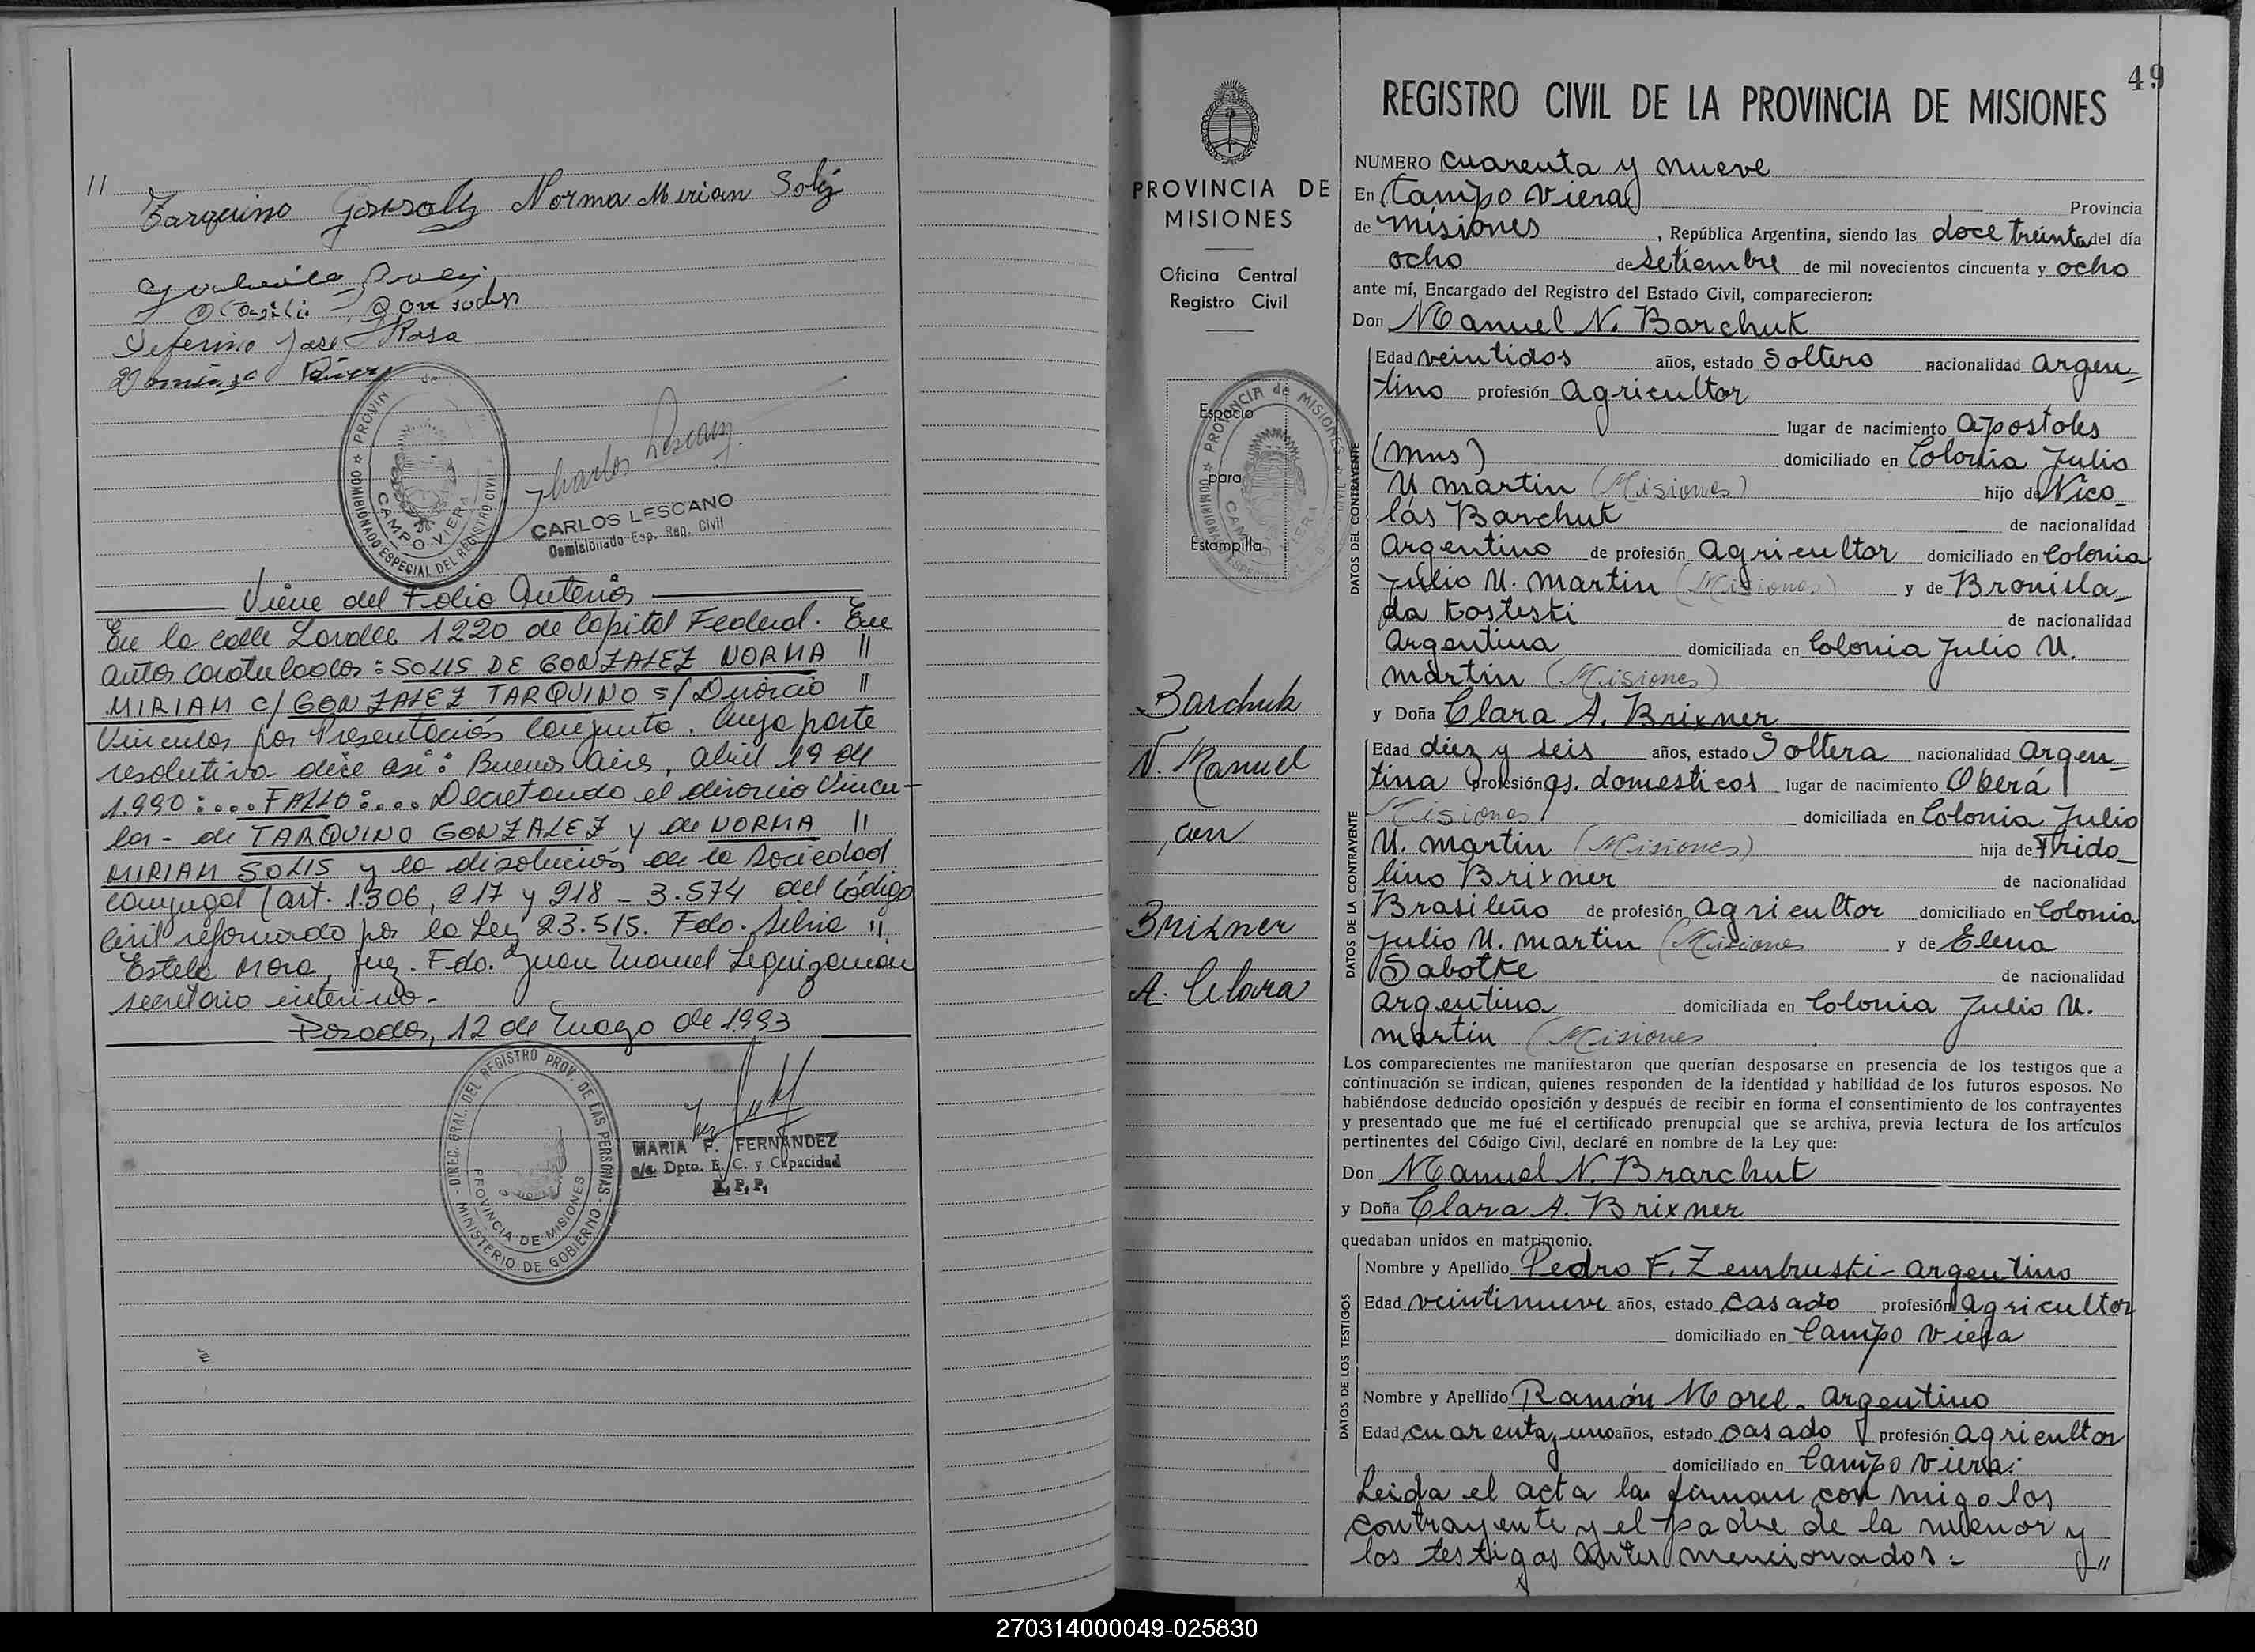 11
Tarquino Gonzalez Norma Mirian Solis
Seferino José Rosa
PROVIN de
CAMPO VIERA
COMISIONADO ESPECIAL DEL REGISTRO CIVIL
Carlos Lescano
CARLOS LESCANO
Comisionado Esp. Reg. Civil
Viene del Folio Anterior
En la calle Lavalle 1220 de Capital Federal. En
autos caratulados: SOLIS DE GONZALEZ NORMA "
MIRIAM c/ GONZALEZ TARQUINO s/ Divorcio "
Vincular por Presentación Conjunta. Cuya parte
resolutiva dice así: Buenos Aires, abril 19 de
1.990:... FALLO:... Decretando el divorcio Vincu-
lar - de TARQUINO GONZALEZ y de NORMA "
MIRIAM SOLIS y la disolución de la Sociedad
conyugal (art. 1.306, 217 y 218 - 3.574 del Código
Civil reformado por la Ley 23.515. Fdo. Silvia "
Estela Mora, Juez. Fdo. Juan Manuel Leguizamón
secretario interino.-
Posadas, 12 de Mayo de 1993
DIREC. GRAL. DEL REGISTRO PROV. DE LAS PERSONAS
MINISTERIO DE GOBIERNO
PROVINCIA DE MISIONES
MARIA F. FERNANDEZ
a/c. Dpto. E. C. y Capacidad
R. P. P.
PROVINCIA DE
MISIONES
Oficina Central
Registro Civil
Espacio
para
Estampilla
PROVINCIA de MISIONES
CAMPO VIERA
Barchuk
N. Manuel
con
Brixner
A. Clara
49
REGISTRO CIVIL DE LA PROVINCIA DE MISIONES
NUMERO cuarenta y nueve
En Campo Viera Provincia
de Misiones, República Argentina, siendo las doce treinta del día
ocho de Setiembre de mil novecientos cincuenta y ocho
ante mí, Encargado del Registro del Estado Civil, comparecieron:
Don Manuel N. Barchuk
DATOS DEL CONTRAYENTE
Edad veintidos años, estado Soltero nacionalidad argen-
tino profesión agricultor
lugar de nacimiento apostoles
(Mns) domiciliado en Colonia Julio
U martin (Misiones) hijo de Nico-
lás Barchuk de nacionalidad
argentino de profesión agricultor domiciliado en Colonia
Julio U. martin (Misiones) y de Bronisla-
da Kosteski de nacionalidad
argentina domiciliada en Colonia Julio U.
martin (Misiones)
y Doña Clara A. Brixner
DATOS DE LA CONTRAYENTE
Edad diez y seis años, estado Soltera nacionalidad argen-
tina profesión qs. domesticos lugar de nacimiento Oberá
Misiones domiciliada en Colonia Julio
U. martin (Misiones) hija de Frido-
lino Brixner de nacionalidad
Brasileño de profesión agricultor domiciliado en Colonia
Julio U. martin (Misiones y de Elena
Sabotke de nacionalidad
argentina domiciliada en Colonia Julio U.
martin (Misiones
Los comparecientes me manifestaron que querían desposarse en presencia de los testigos que a
continuación se indican, quienes responden de la identidad y habilidad de los futuros esposos. No
habiéndose deducido oposición y después de recibir en forma el consentimiento de los contrayentes
y presentado que me fué el certificado prenupcial que se archiva, previa lectura de los artículos
pertinentes del Código Civil, declaré en nombre de la Ley que:
Don Manuel N. Brarchut
y Doña Clara A. Brixner
quedaban unidos en matrimonio.
DATOS DE LOS TESTIGOS
Nombre y Apellido Pedro F. Zembruski - argentino
Edad veintinueve años, estado casado profesión agricultor
domiciliado en Campo Viera
Nombre y Apellido Ramón Morel - argentino
Edad cuarenta y uno años, estado casado profesión agricultor
domiciliado en Campo Viera.
Leida el acta la firman con migo los
contrayente y el padre de la menor y
los testigos antes mencionados:- "
270314000049-025830